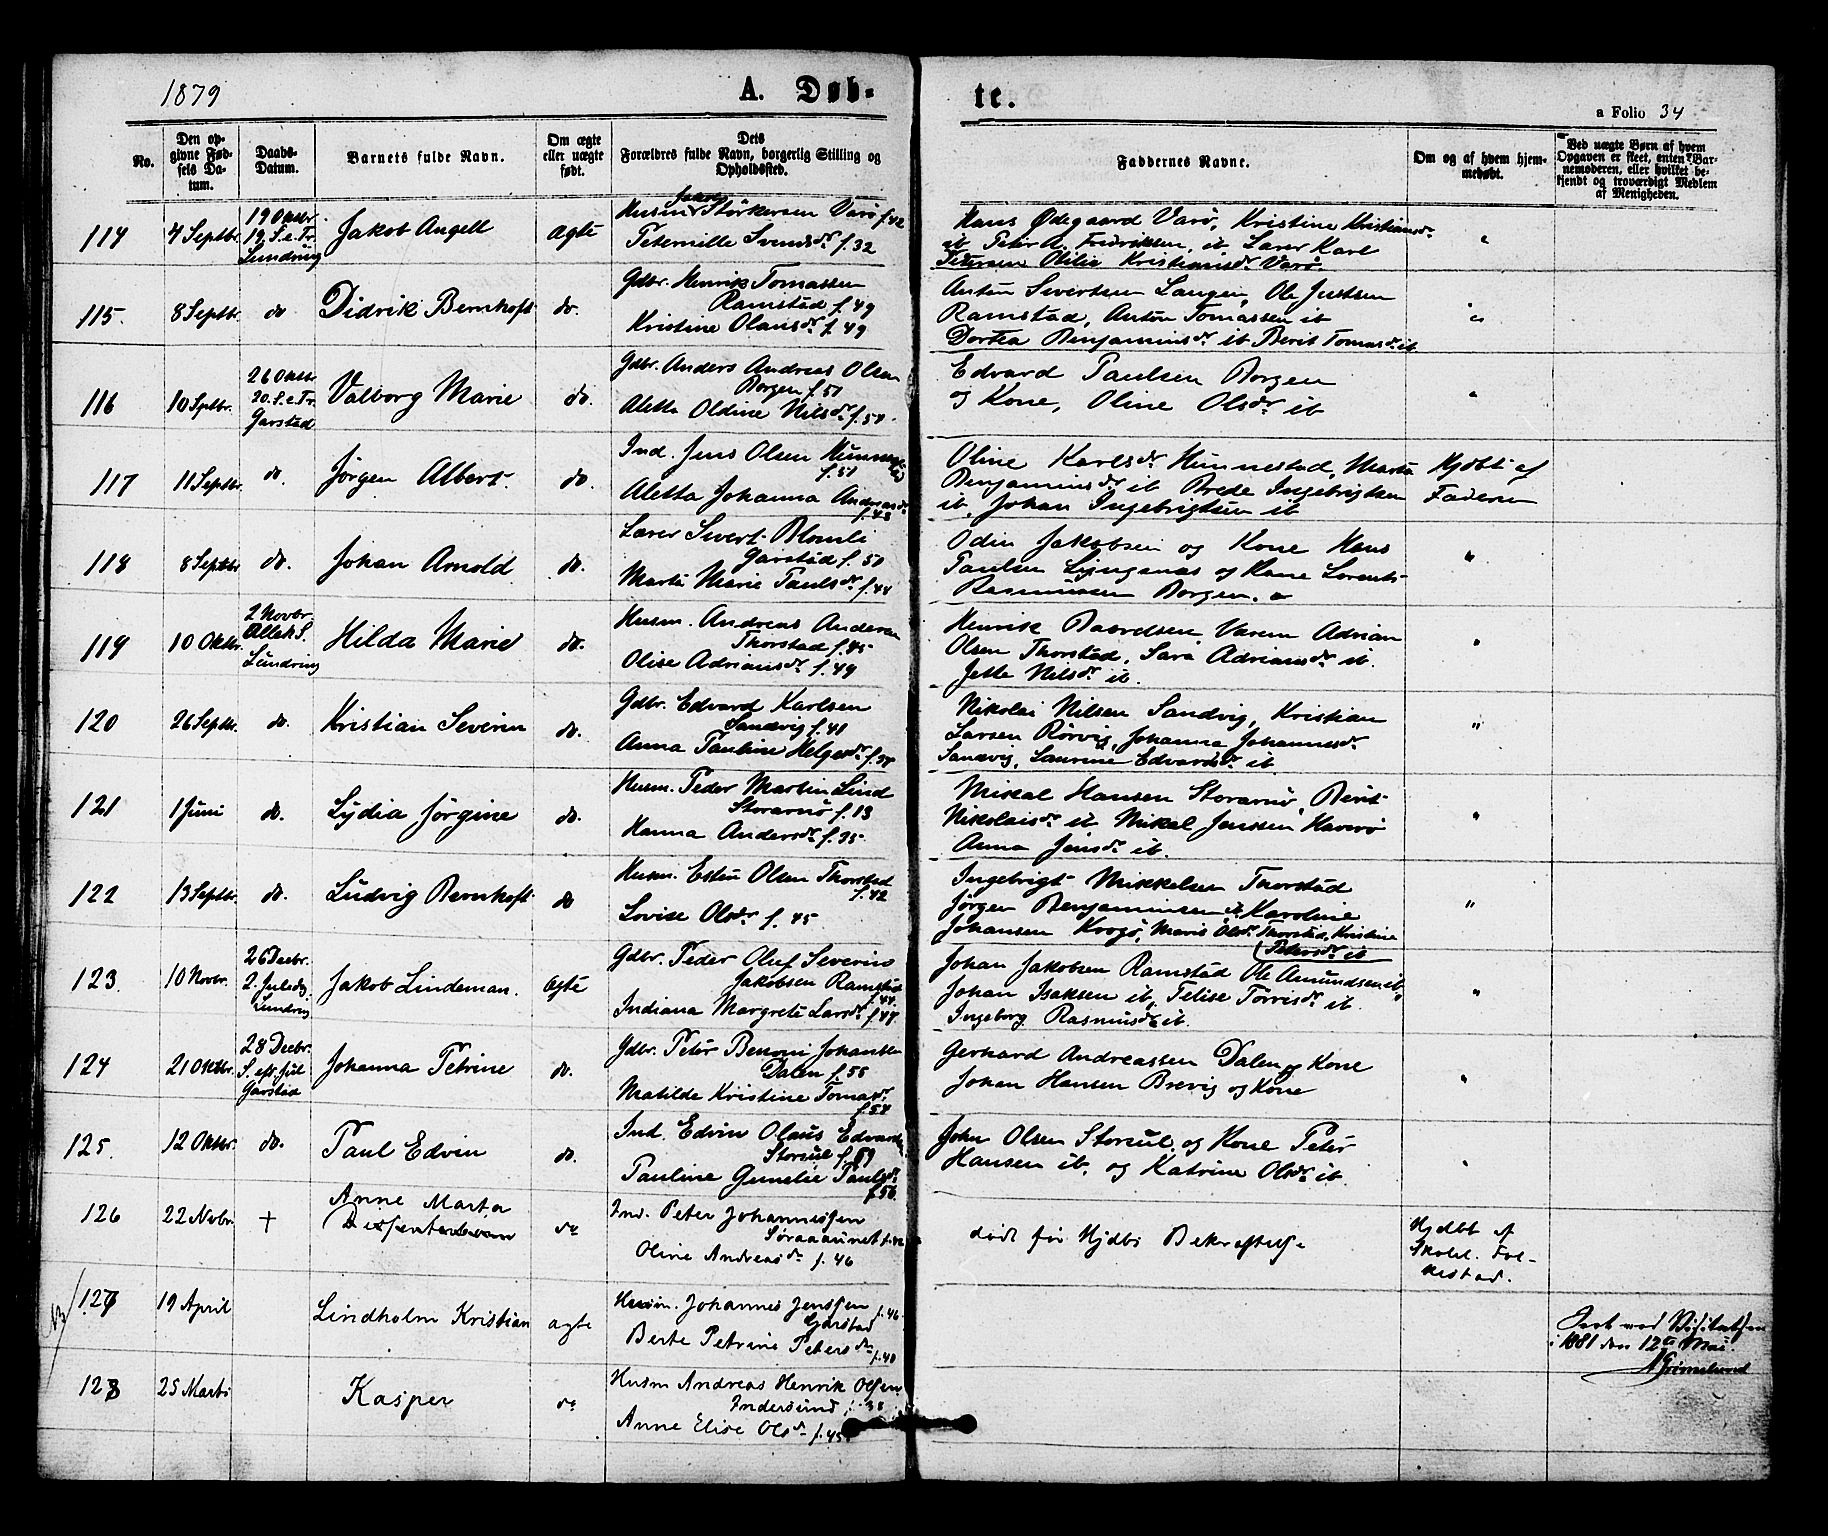 1879
A. Døb-
te.
a Folio 34
No.
Den op-
givne Fød-
sels Da-
tum.
Daabs-
Datum.
Barnets fulde Navn.
Om ægte
eller uægte
født.
Dets
Forældres fulde Navn, borgerlig Stilling og
Opholdssted.
Faddernes Navne.
Om og af hvem hjem-
medøbt.
Ved uægte Børn af hvem
Opgaven er skeet, enten Bar-
nemoderen, eller hvilket be-
kjendt og troværdigt Medlem
af Menigheden.
114
4 Septbr.
19 Oktbr.
19 S. e. Tr.
Lundring
Jakob Angell
Ægte
Husm. Jakob Størkersen Varø f. 42
Peternille Svendsdr. f. 32
Hans Ødegaard Varø, Kristine Kristiansdr.
ib Peter A. Fredriksen, ib Lærer Karl
Petersen Otilie Kristiansdr. Varø.
"
115.
8 Septbr.
do
Didrik Bernhoft
do.
Gdbr. Henrik Tomassen
Ramstad f. 49
Kristine Olausdr. f. 49
Anton Severtsen Langen, Ole Justsen
Ramstad, Anton Tomassen ib
Dortea Benjaminsdr. ib Berit Tomasdr. ib
"
116
10 Sptbr.
26 Oktbr
20. S. e. Tr.
Garstad
Valborg Marie
do.
Gdbr. Anders Andreas Olsen
Borgen f. 51
Aletta Oldine Nilsdr. f. 50.
Edvard Paulsen Borgen
og Kone, Oline Olsdr ib
"
117
11 Septbr.
do.
Jørgen Albert
do.
Ind. Jens Olsen Hunnestad
f. 51
Aletta Johanna Andreasdr.
f. 48
Oline Karlsdr. Hunnestad, Marta
Benjaminsdr. ib Brede Ingebrigtsen
ib, Johan Ingebrigtsen ib
Hjdbt af
Faderen
118
8 Septbr
do.
Johan Arnold
do.
Lærer Sivert Blomli
Garstad f. 50
Marta Marie Paulsdr. f. 44
Odin Jakobsen og Kone Hans
Paulsen Ljugenas og Kone Lorents
Rasmussen Borgen.
"
119
10 Oktbr.
2 Novbr
Alleh S.
Lundring
Hilda Marie
do.
Husm. Andreas Andersen
Thorstad f. 45
Olise Adriansdr. f. 49
Henrik Baardsen Varem Adrian
Olsen Thorstad, Sara Adriansdr. ib.
Jette Nilsdr. ib.
"
120
26 Septbr.
do.
Kristian Severin
do.
Gdbr. Edvard Karlsen
Sandvig f. 41
Anna Pauline Helgesdr. f. 38
Nikolai Nilsen Sandvig, Kristian
Larsen Rørvig, Johanna Johannesdr.
Sandvig, Laurine Edvardsdr. ib
"
121
1 Juni
do.
Lydia Jørgine
do.
Husm. Peder Martin Lind
Storarnø f. 13
Hanna Andersdr. f. 35.
Mikal Hansen Storarnø, Berit
Nikolaisdr. ib Mikal Jenssen Havrø
Anna Jensdr. ib.
"
122
13 Septbr.
do.
Ludvig Bernhoft
do
Husm. Esten Olsen Thorstad
f. 42
Lovise Olsdr f. 45
Ingebrigt Mikkelsen Thorstad
Jørgen Benjaminsen ib Karoline
Johansen Krogø, Maria Olsdr. Thorstad, Kristine
Petersdr. ib
"
123.
10 Novbr.
26 Decbr.
2. Juledg
Lundring
Jakob Lindeman.
Ægte
Gdbr. Peder Oluf Severin
Jakobsen Ramstad
f. 44.
Indiana Margrete Larsdr. f. 47.
Johan Jakobsen Ramstad Ole Amundsen ib
Johan Isaksen ib, Felise Torrisdr. ib
Ingeborg Rasmusdr. ib.
"
124
21 Oktbr.
28 Decbr.
S. eft. Jul
Garstad
Johanna Petrine
do.
Gdbr. Peter Benoni Johansen
Dalen f. 55
Matilde Kristine Tomasdr.
f. 54
Gerhard Andreassen Dalen og Kone
Johan Hansen Brevig og Kone
"
125.
12 Oktbr.
do.
Paul Edvin
do.
Ind. Edvin Olaus Edvardsen
Storsul f. 59
Pauline Gunelie Paulsdr.
f. 56.
John Olsen Storsul og Kone Peter
Hansen ib. og Katrine Olsdr ib.
"
126
22 Novbr.
+
Anne Marta
Dissenterbarn
do
Ind. Peter Johannessen
f. 42
Oline Andreasdr. f. 46
død før Hjdbs Bekræftelse
Hjdbt af
Skolel. Fol-
kestad.
NB
127
19 April
Lindholm Kristian
ægte
Husm. Johannes Jenssen f. 46
Garstad
Berte Petrine Petersdr.
f. 40
Seet ved Visitatsen
i 1881 den 12te Mai.
A Grimelund
128
25 Marts
Kasper
do
Husm Andreas Henrik Olsen
Indersund f. 38
Anne Elise Olsdr. f. 45